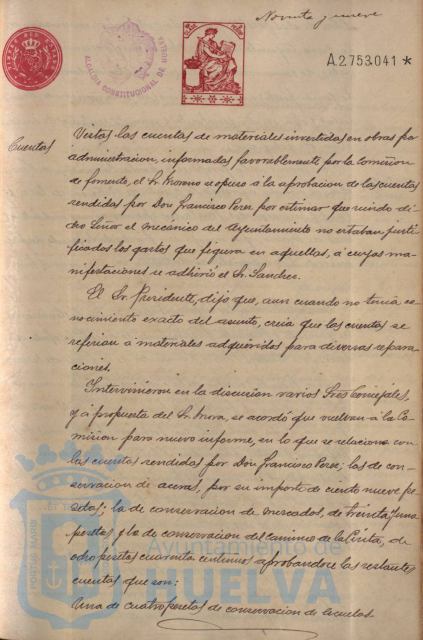 Noventa y nueve
A2.753.041 *
ALCALDIA CONSTITUCIONAL DE HUELVA
Cuentas
Vistas las cuentas de materiales invertidos en obras por
administracion, informadas favorablemente por la Comision
de fomento, el Sr. Moreno se opuso á la aprobacion de las cuentas
rendidas por Don Francisco Perez por estimar que siendo di-
cho Señor el mecánico del Ayuntamiento no estaban justi-
ficados los gastos que figura en aquellas, á cuyas ma-
nifestaciones se adhirió el Sr. Sanchez.
El Sr. Presidente, dijo que, aun cuando no tenia co-
nocimiento exacto del asunto, creia que las cuentas se
referian á materiales adquiridos para diversas repara-
ciones.
Intervinieron en la discusion varios Sres Concejales,
y á propuesta del Sr. Mora, se acordó que vuelvan á la Co-
mision para nuevo informe, en lo que se relaciona con
las cuentas rendidas por Don Francisco Perez; las de con-
servacion de aceras, por su importe de ciento nueve pe-
setas; la de conservacion de mercados, de treinta y una
pesetas y la de conservacion del camino de la Cinta, de
ocho pesetas cuarenta centimos aprobandose las restantes
cuentas que son:
Una de cuatro pesetas de conservacion de Escuelas
Ayuntamiento de
HUELVA